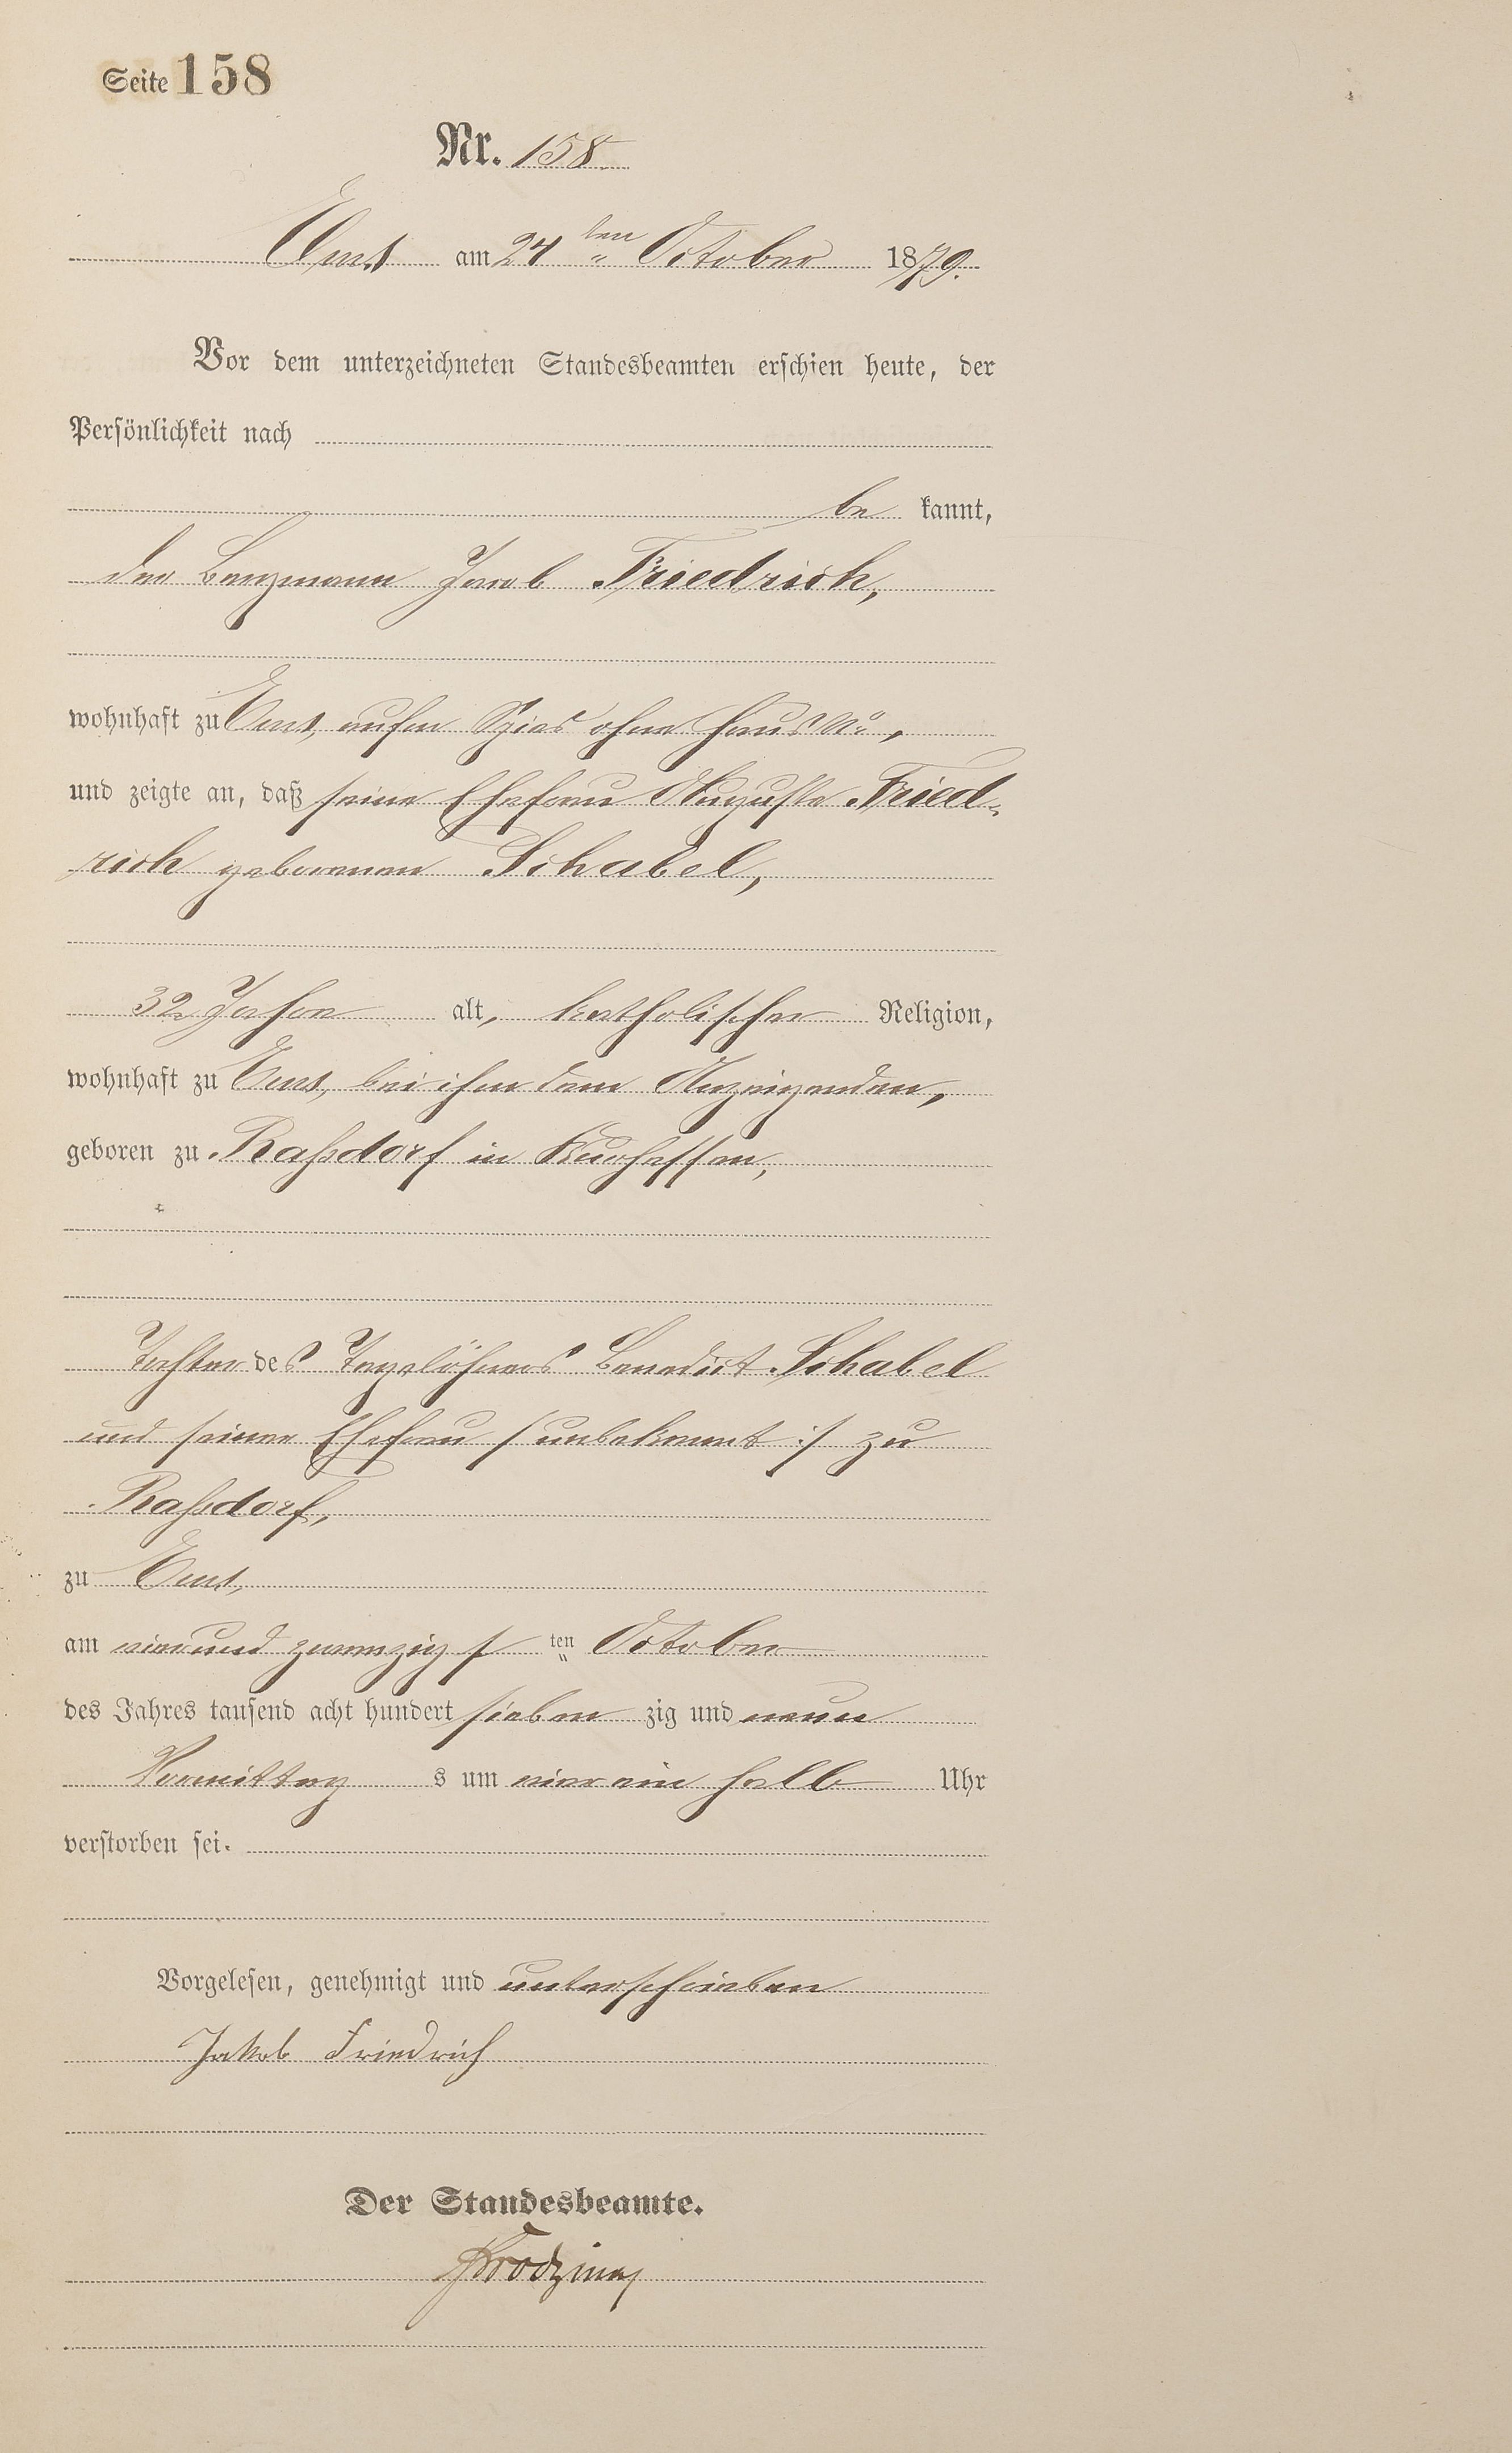 Seite 158
Nr. 158.
Ems am 24ten October 1879.
Vor dem unterzeichneten Standesbeamten erschien heute, der
Persönlichkeit nach
be kannt,
der Bergmann Jacob Friedrich,
wohnhaft zu Ems, aufm Spies ohne Haus No,
und zeigte an, daß seine Ehefrau Auguste Fried-
rich geborenen Schabel,
32 Jahre alt, katholischer Religion,
wohnhaft zu Ems, bei ihm dem Anzeigenden,
geboren zu Raßdorf in Kurhessen,
Tochter des Tagelöhners Benedict Schabel
und seiner Ehefrau /: unbekannt :/ zu
Raßdorf,
zu Ems,
am vierund zwanzigs ten October
des Jahres tausend acht hundert sieben zig und neun
Vormittag s um vier ein halb Uhr
verstorben sei.
Vorgelesen, genehmigt und unterschrieben
Jakob Friedrich
Der Standesbeamte.